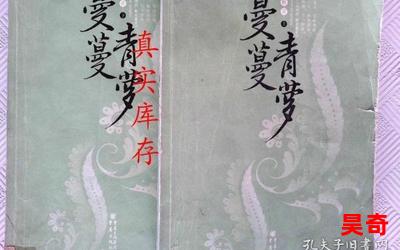 蔓蔓
青萝
真实库存
蔓蔓
青萝
昊奇
孔夫子旧书网